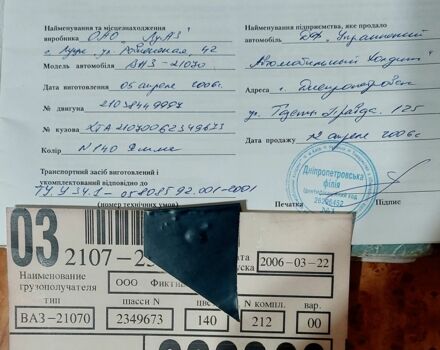 Найменування та місцезнаходження
виробника ОАО ЛуАЗ
г. Луцк, ул. Ровенская, 42
Модель автомобіля ВАЗ-21070
Дата виготовлення 05 апреля 2006г.
№ двигуна
№ кузова ХТА 21070062349673
Колір №140 Яшма
Транспортний засіб виготовлений і
укомплектований відповідно до
ТУ У 34.1-05808592.001-2001
(номер технічних умов)
Найменування підприємства, яке продало
автомобіль ДФ "Украинский
Автомобильный Холдинг"
Адреса г. Днепропетровск
ул. Газеты Правда, 125
Дата продажу апреля 2006г.
Печатка
Підпис
Дніпропетровська
філія
Ідентифікаційний код
03
2107-2
Наименование
грузополучателя
ООО
2006-03-22
тип
шасси N
N компл.
вар.
ВАЗ-21070
2349673
140
212
00